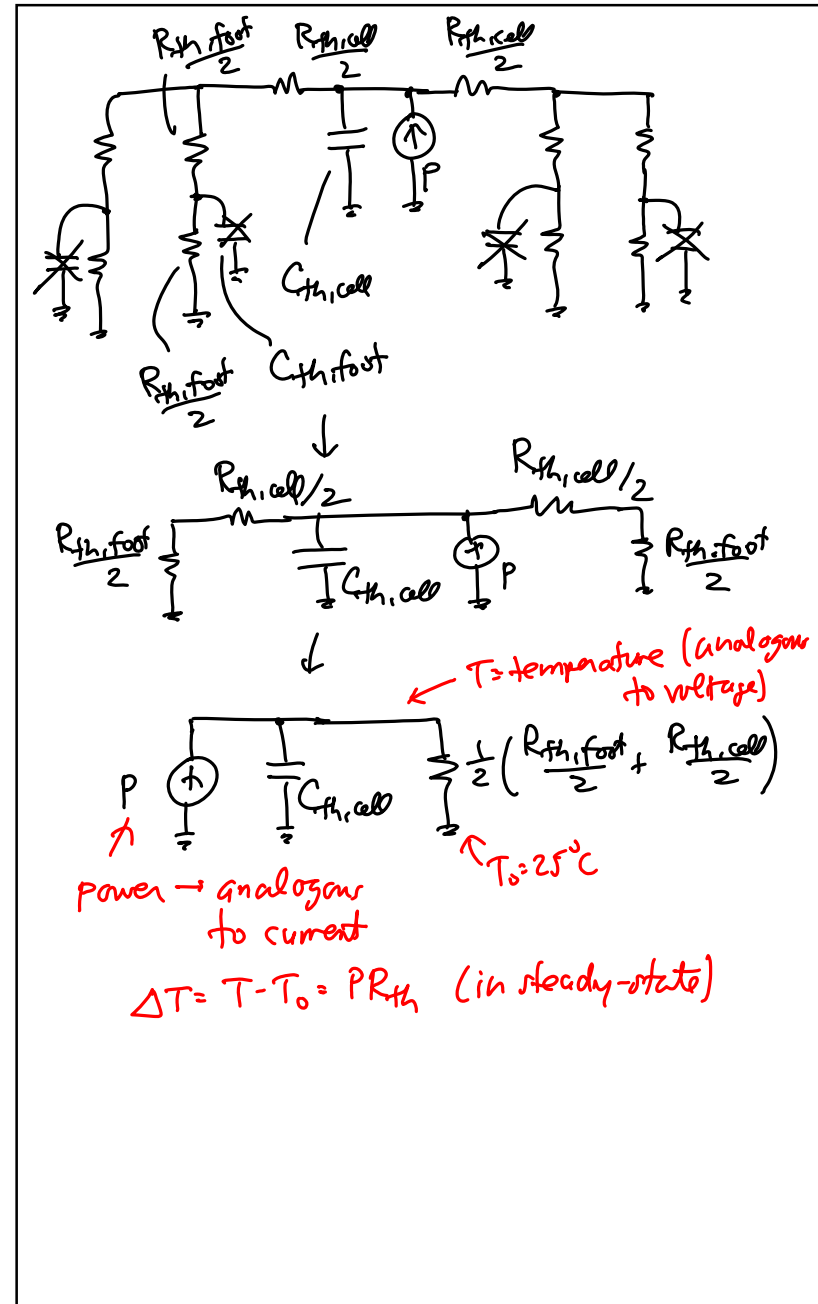 R_th,foot/2 R_th,cell/2 R_th,cell/2
P
C_th,cell
R_th,foot/2 C_th,foot
R_th,cell/2 R_th,cell/2
R_th,foot/2 C_th,cell P R_th,foot/2
T = temperature (analogous
to voltage)
P C_th,cell 1/2 (R_th,foot/2 + R_th,cell/2)
T₀ = 25°C
power → analogous
to current
ΔT = T - T₀ = PR_th (in steady-state)